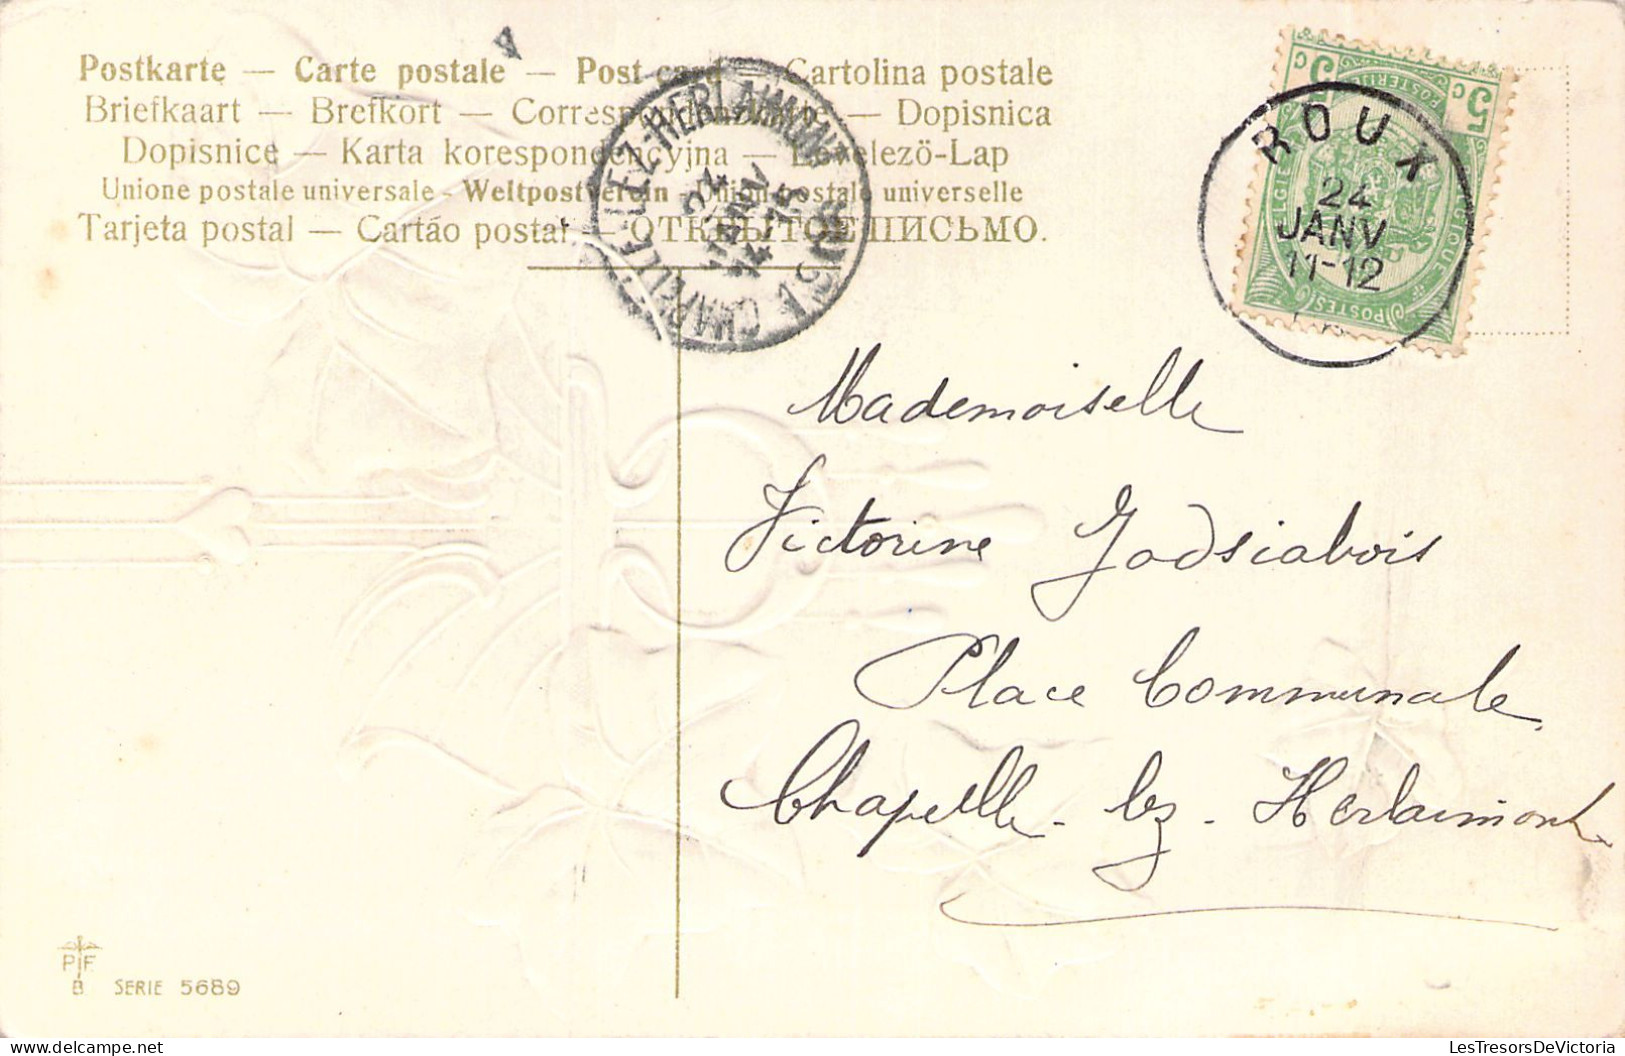 Postkarte — Carte postale — Post card — Cartolina postale
Briefkaart — Brefkort — Correspondenzkarte — Dopisnica
Dopisnice — Karta korespondencyjna — Levelezö-Lap
Unione postale universale - Weltpostverein - Union postale universelle
Tarjeta postal — Cartáo postal — ОТКРЫТОЕ ПИСЬМО.
CHAPELLE-LEZ-HERLAIMONT
24
JANV
14-15
ROUX
24
JANV
11-12
5 C
5 C
POSTES
POSTERIJEN
BELGIQUE
Mademoiselle
Victorine Godsiabois
Place Communale
Chapelle-lez-Herlaimont
PF
B
SERIE 5689
LesTresorsDeVictoria